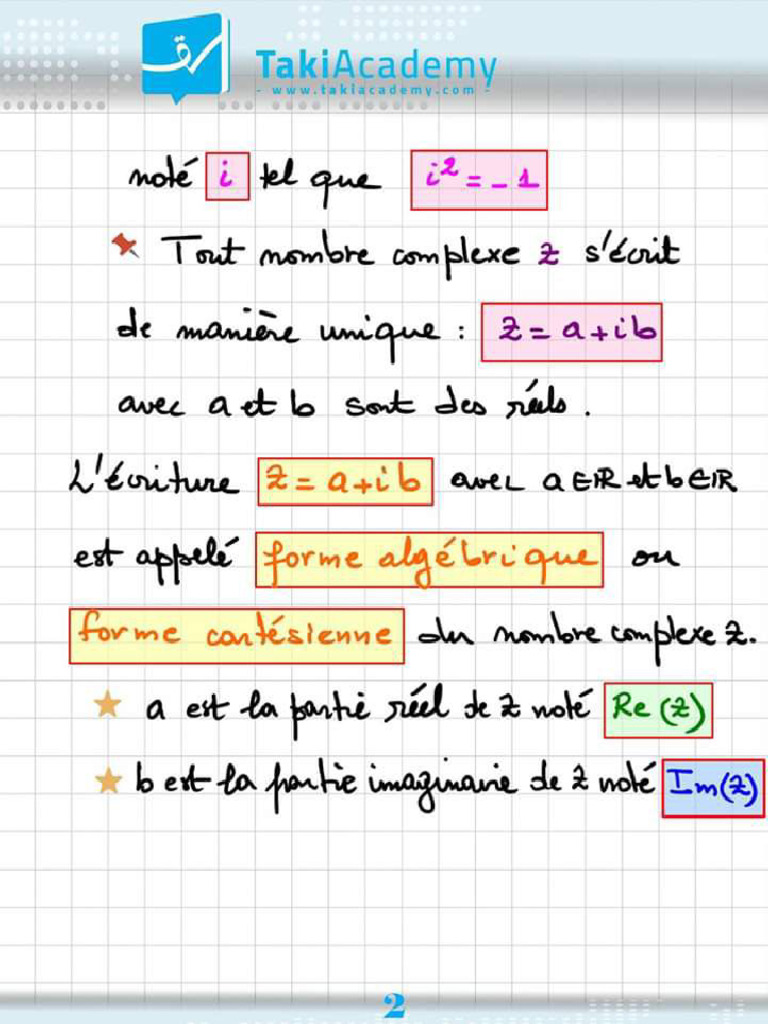 TakiAcademy
- www.takiacademy.com -
noté i tel que i² = -1
Tout nombre complexe z s'écrit
de manière unique : z = a + ib
avec a et b sont des réels.
L'écriture z = a + ib avec a ∈ ℝ et b ∈ ℝ
est appelé forme algébrique ou
forme cartésienne du nombre complexe z.
a est la partie réel de z noté Re(z)
b est la partie imaginaire de z noté Im(z)
2